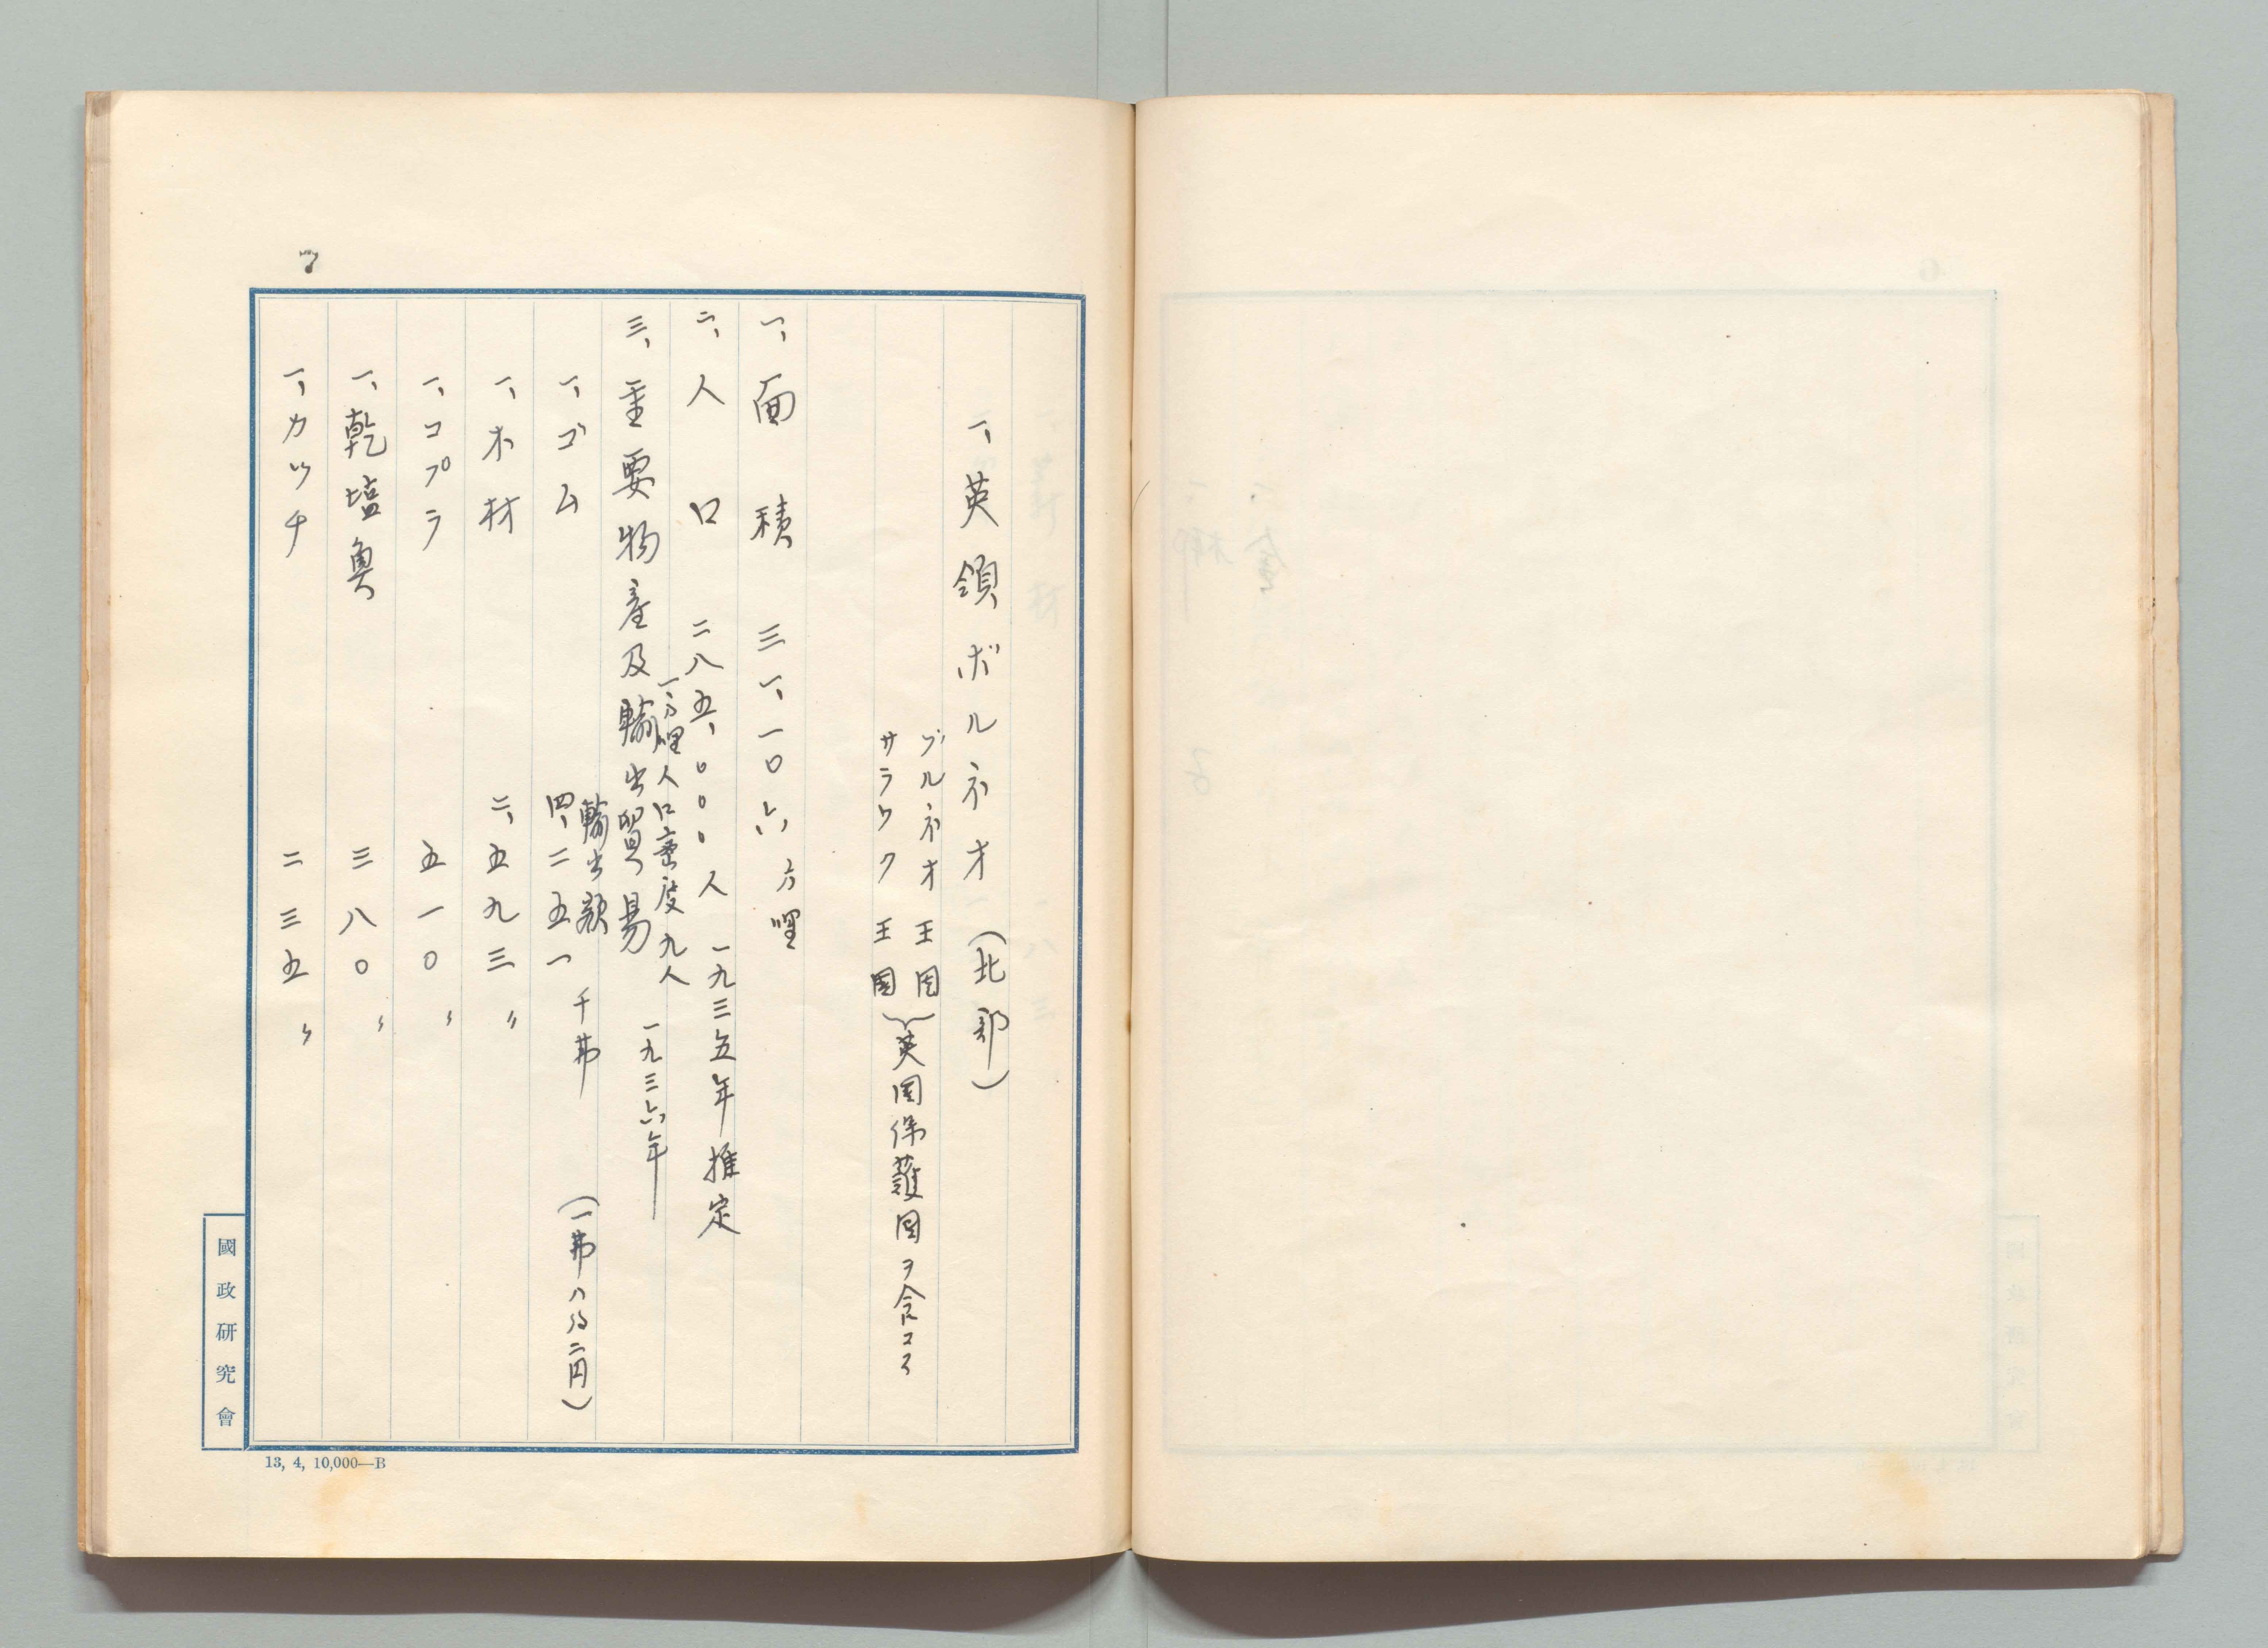 一、英領ボルネオ（北部）
ブルネオ王国
サラワク王国
英国保護国ヲ含マス
一、面積 三一、一〇六方哩
二、人口 二八五、〇〇〇人 一九三五年推定
一方哩人口密度九人
三、重要物産及輸出貿易 一九三六年
輸出額
一、ゴム 四、二五一千弗 （一弗ハ約二円）
一、木材 二、五九三〃
一、コプラ 五一〇〃
一、乾塩魚 三八〇〃
一、カツチ 二三五〃
國政研究會
13, 4, 10,000—B